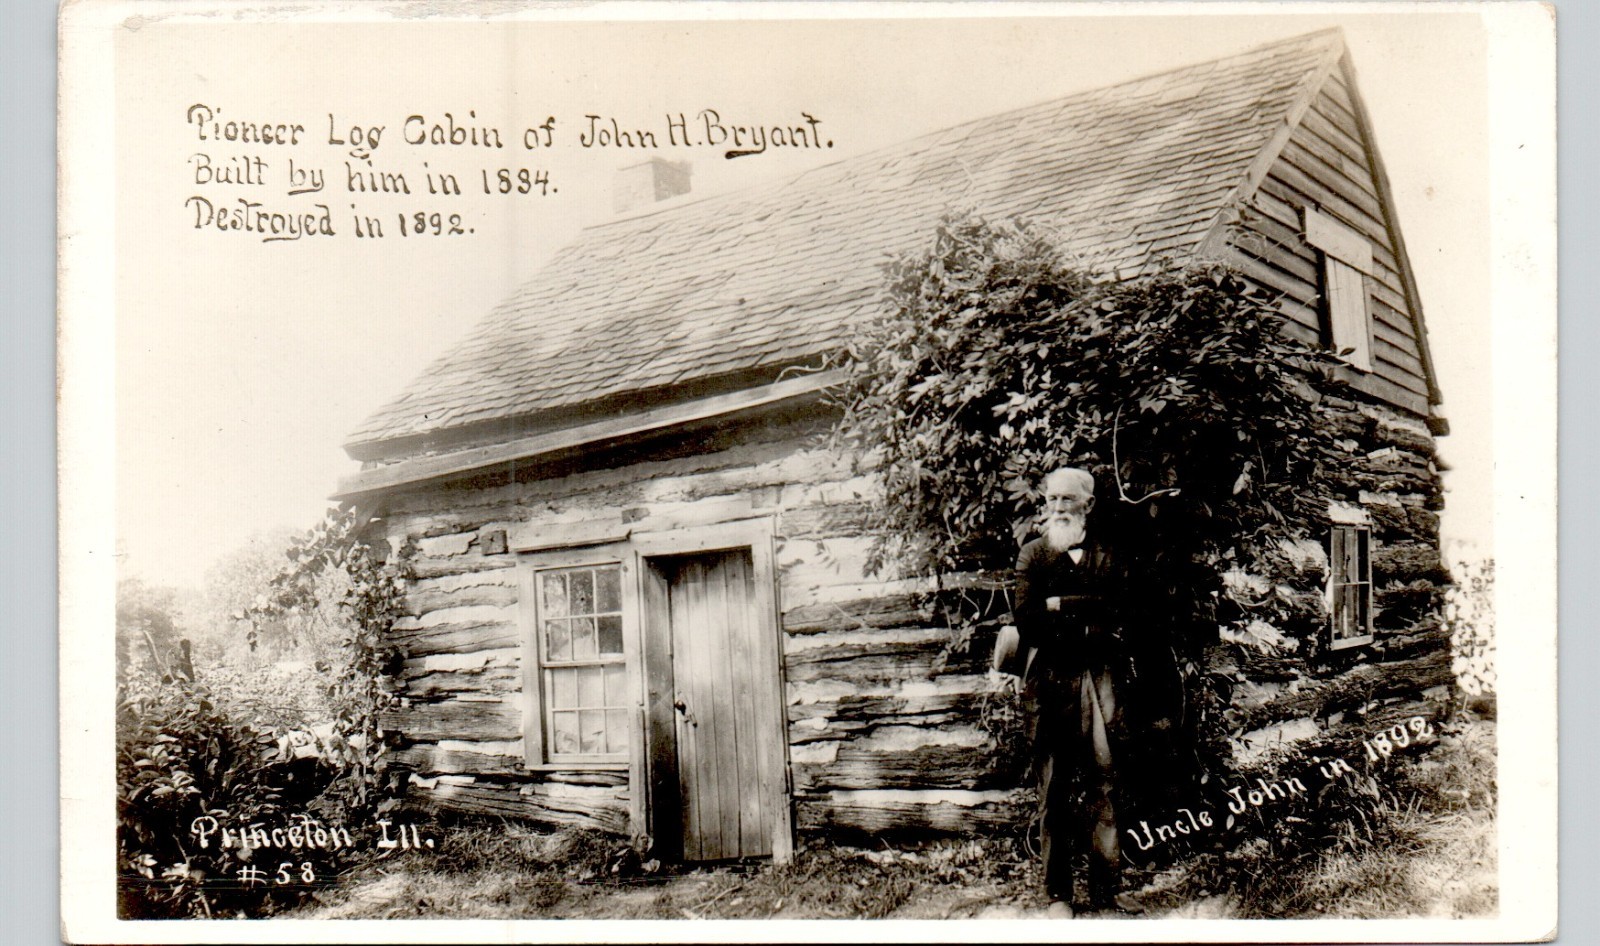 Pioneer Log Cabin of John H. Bryant.
Built by him in 1834.
Destroyed in 1892.
Uncle John in 1892
Princeton Ill.
#58